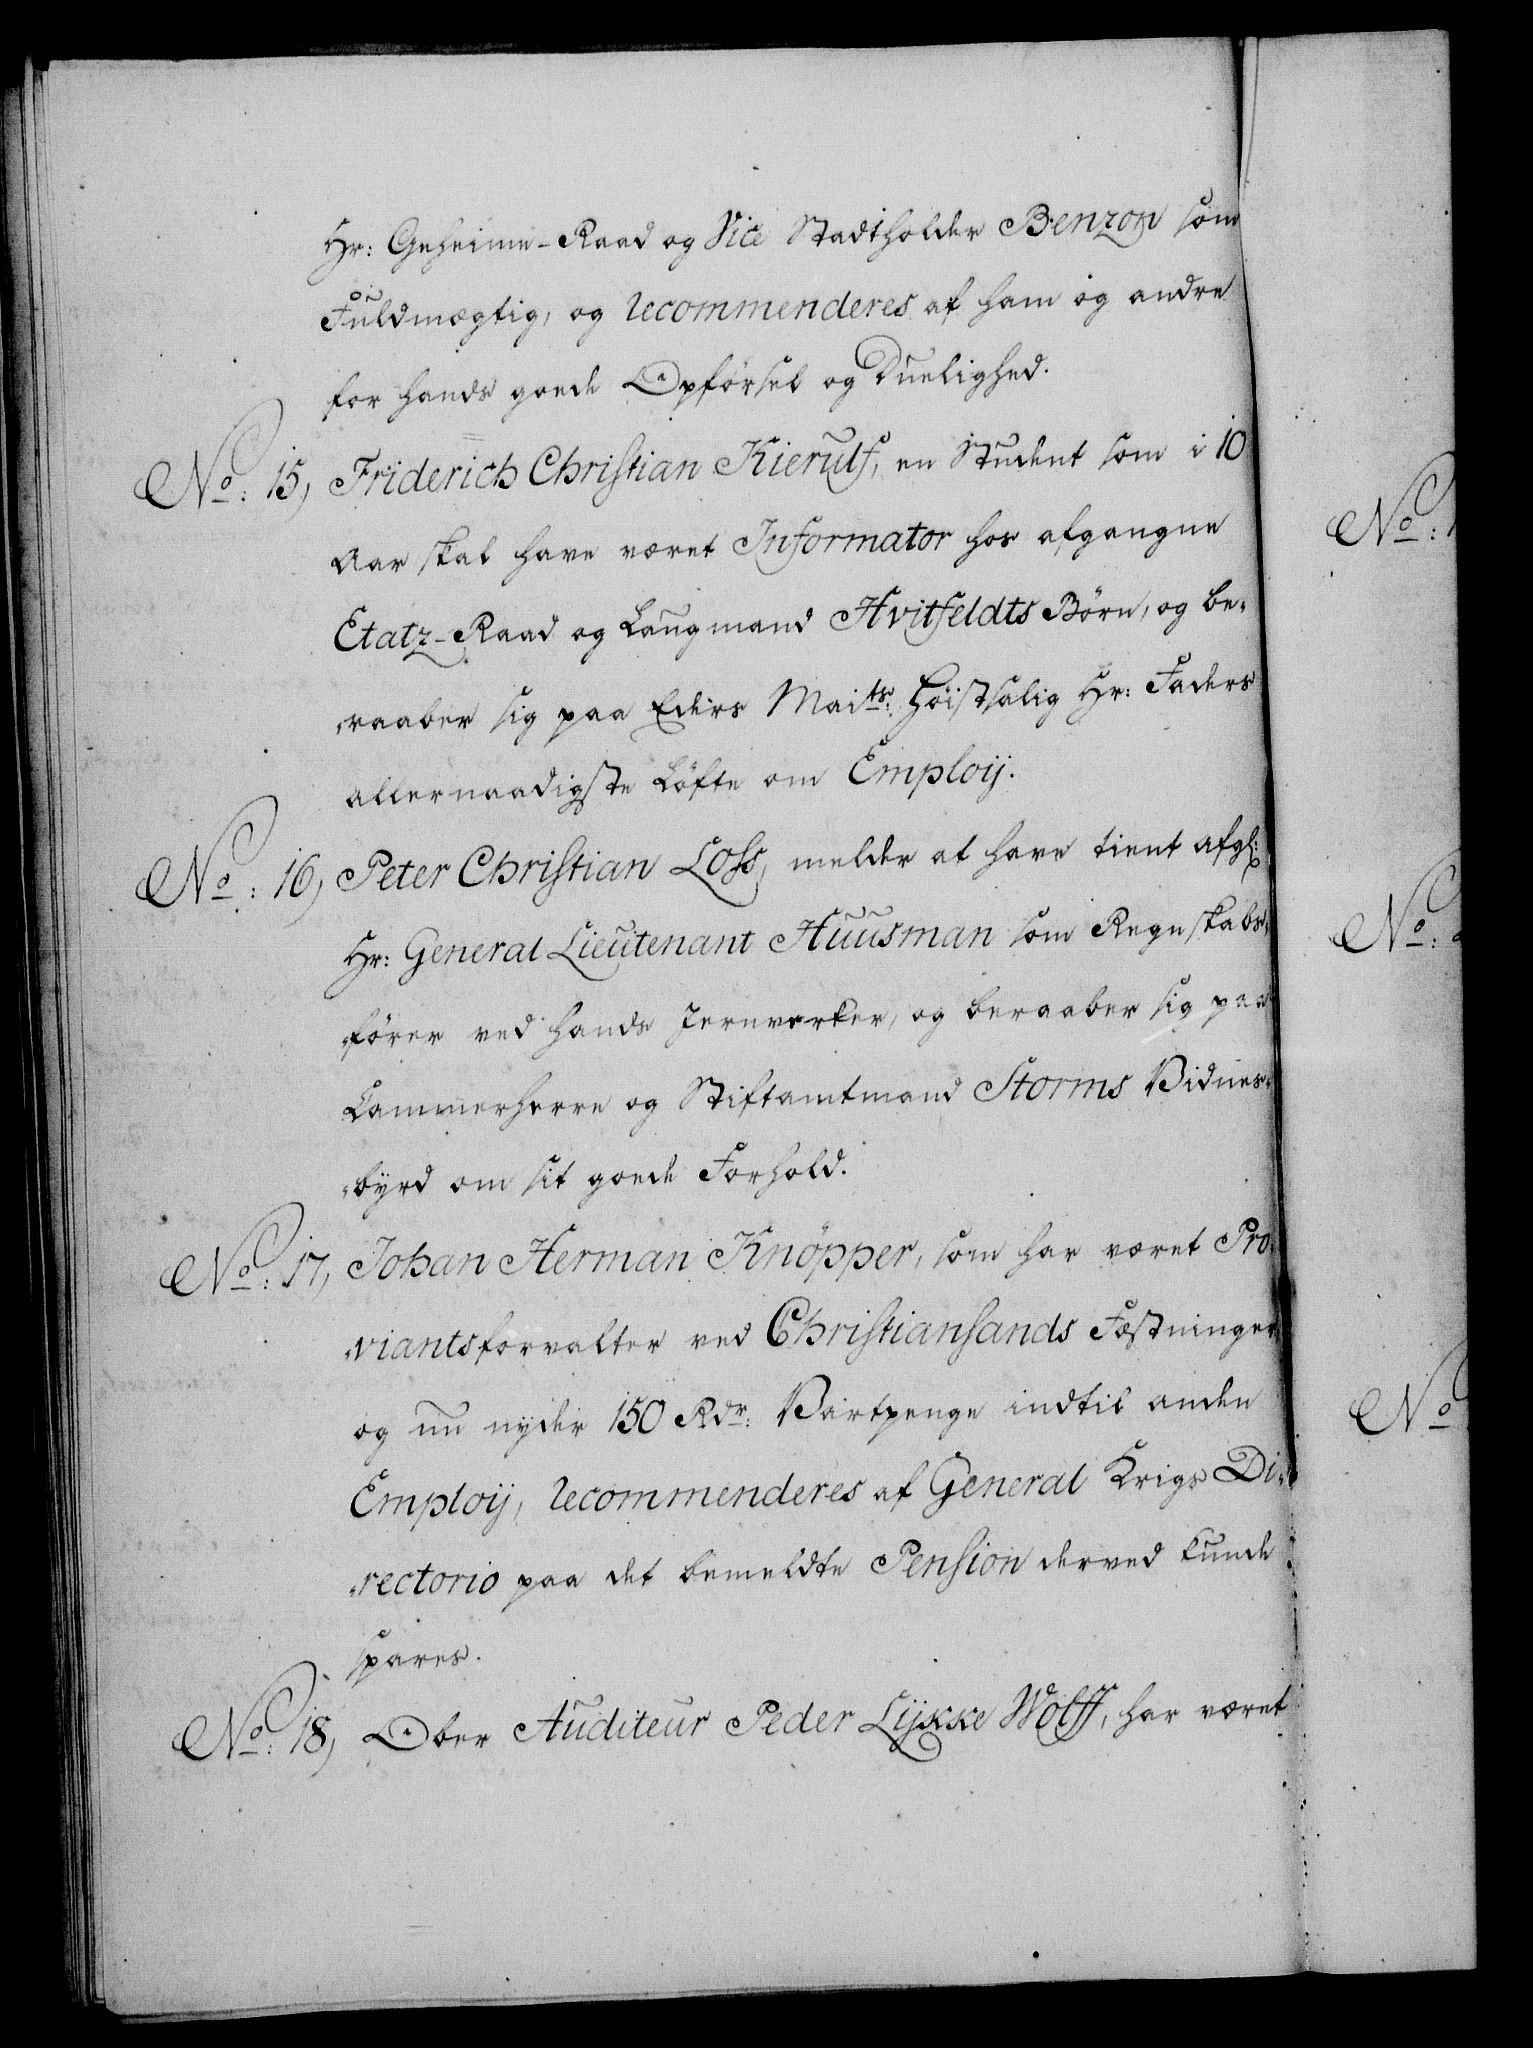 Hr: Geheime-Raad og Vice Stadtholder Benzon som
Fuldmægtig, og recommenderes af ham og andre
for hands goede Opførsel og Duelighed.
No: 15, Friderich Christian Kierulf, en Student som i 10
Aar skal have været Informator hos afgangne
Etatz-Raad og Laugmand Hvitfeldts Børn, og be„
„raaber sig paa Eders Maits: Høistsalig Hr: Faders
allernaadigste Løfte om Employ.
No: 16, Peter Christian Loss, melder at have tient afg:
Hr: General Lieutenant Huusman som Regnskabs„
„fører ved hands Jernverker, og beraaber sig paa
Cammerherre og Stiftamtmand Storms Vidnes„
„byrd om sit goede Forhold.
No: 17, Johan Herman Knöpper, som har været Pro„
„viantsforvalter ved Christiansands Fæstninger,
og nu nyder 150 Rdr: Vartpenge indtil anden
Employ, recommenderes af General Krigs Di„
„rectorio paa det bemeldte Pension derved kunde
spares.
No: 18, Ober Auditeur Peder Lykke Wolff, har været
No: 
No: 
No